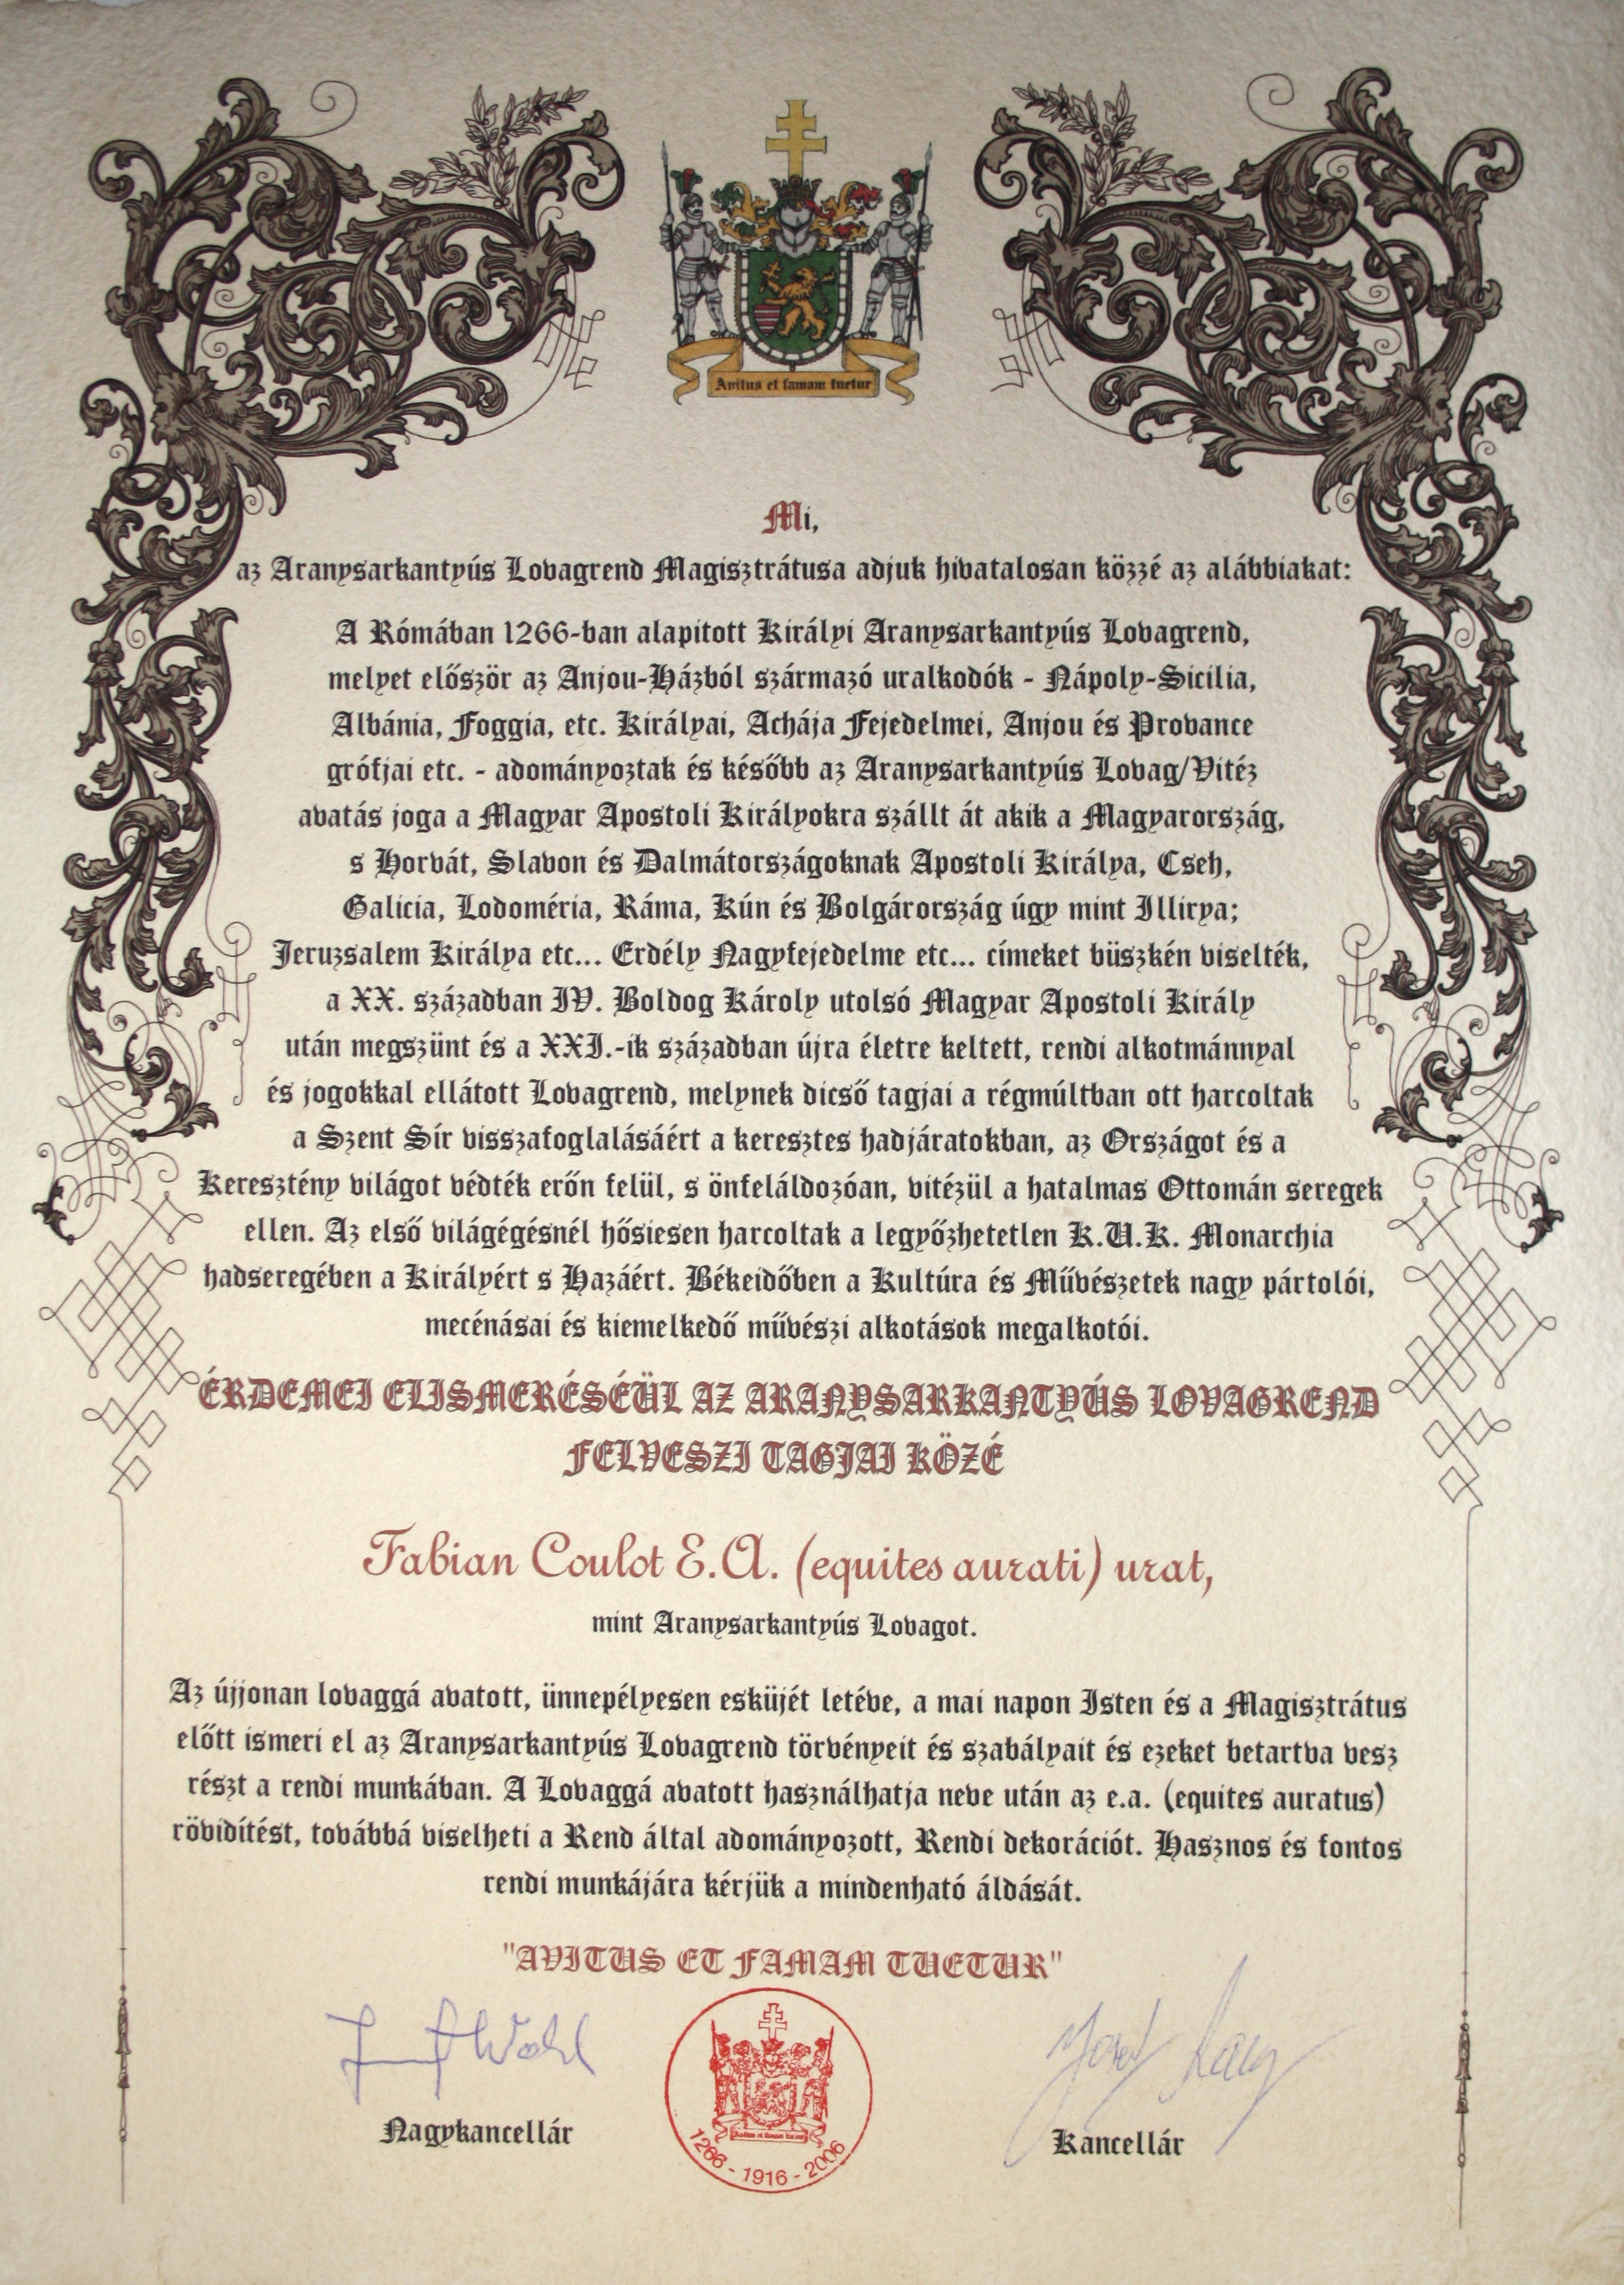 Avitus et famam tuetur
Mi,
az Aranysarkantyús Lovagrend Magisztrátusa adjuk hivatalosan közzé az alábbiakat:
A Rómában 1266-ban alapitott Királyi Aranysarkantyús Lovagrend,
melyet először az Anjou-Házból származó uralkodók - Nápoly-Sicilia,
Albánia, Foggia, etc. Királyai, Achája Fejedelmei, Anjou és Provance
grófjai etc. - adományoztak és később az Aranysarkantyús Lovag/Vitéz
avatás joga a Magyar Apostoli Királyokra szállt át akik a Magyarország,
s Horvát, Slavon és Dalmátországoknak Apostoli Királya, Cseh,
Galicia, Lodoméria, Ráma, Kún és Bolgárország úgy mint Illirya;
Jeruzsalem Királya etc... Erdély Nagyfejedelme etc... címeket büszkén viselték,
a XX. században IV. Boldog Károly utolsó Magyar Apostoli Király
után megszünt és a XXI.-ik században újra életre keltett, rendi alkotmánnyal
és jogokkal ellátott Lovagrend, melynek dicső tagjai a régmúltban ott harcoltak
a Szent Sír visszafoglalásáért a keresztes hadjáratokban, az Országot és a
Keresztény világot védték erőn felül, s önfeláldozóan, vitézül a hatalmas Ottomán seregek
ellen. Az első világégésnél hősiesen harcoltak a legyőzhetetlen K.U.K. Monarchia
hadseregében a Királyért s Hazáért. Békeidőben a Kultúra és Művészetek nagy pártolói,
mecénásai és kiemelkedő művészi alkotások megalkotói.
ÉRDEMEI ELISMERÉSÉÜL AZ ARANYSARKANTYÚS LOVAGREND
FELVESZI TAGJAI KÖZÉ
Fabian Coulot E.A. (equites aurati) urat,
mint Aranysarkantyús Lovagot.
Az újjonan lovaggá avatott, ünnepélyesen esküjét letéve, a mai napon Isten és a Magisztrátus
előtt ismeri el az Aranysarkantyús Lovagrend törvényeit és szabályait és ezeket betartva vesz
részt a rendi munkában. A Lovaggá avatott használhatja neve után az e.a. (equites auratus)
rövidítést, továbbá viselheti a Rend által adományozott, Rendi dekorációt. Hasznos és fontos
rendi munkájára kérjük a mindenható áldását.
"AVITUS ET FAMAM TUETUR"
Nagykancellár
1266 - 1916 - 2006
Kancellár